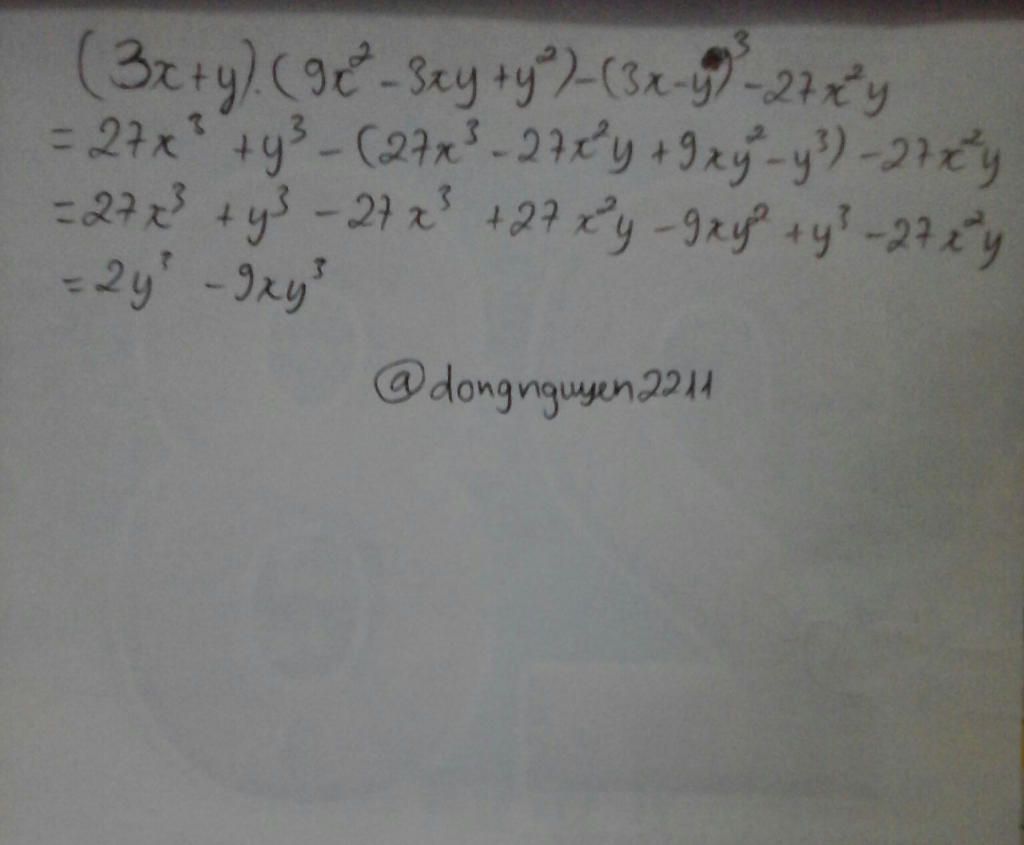 (3x+y).(9x²-3xy+y²)-(3x-y)³-27x²y
=27x³+y³-(27x³-27x²y+9xy²-y³)-27x²y
=27x³+y³-27x³+27x²y-9xy²+y³-27x²y
=2y³-9xy³
@dongnguyen2211